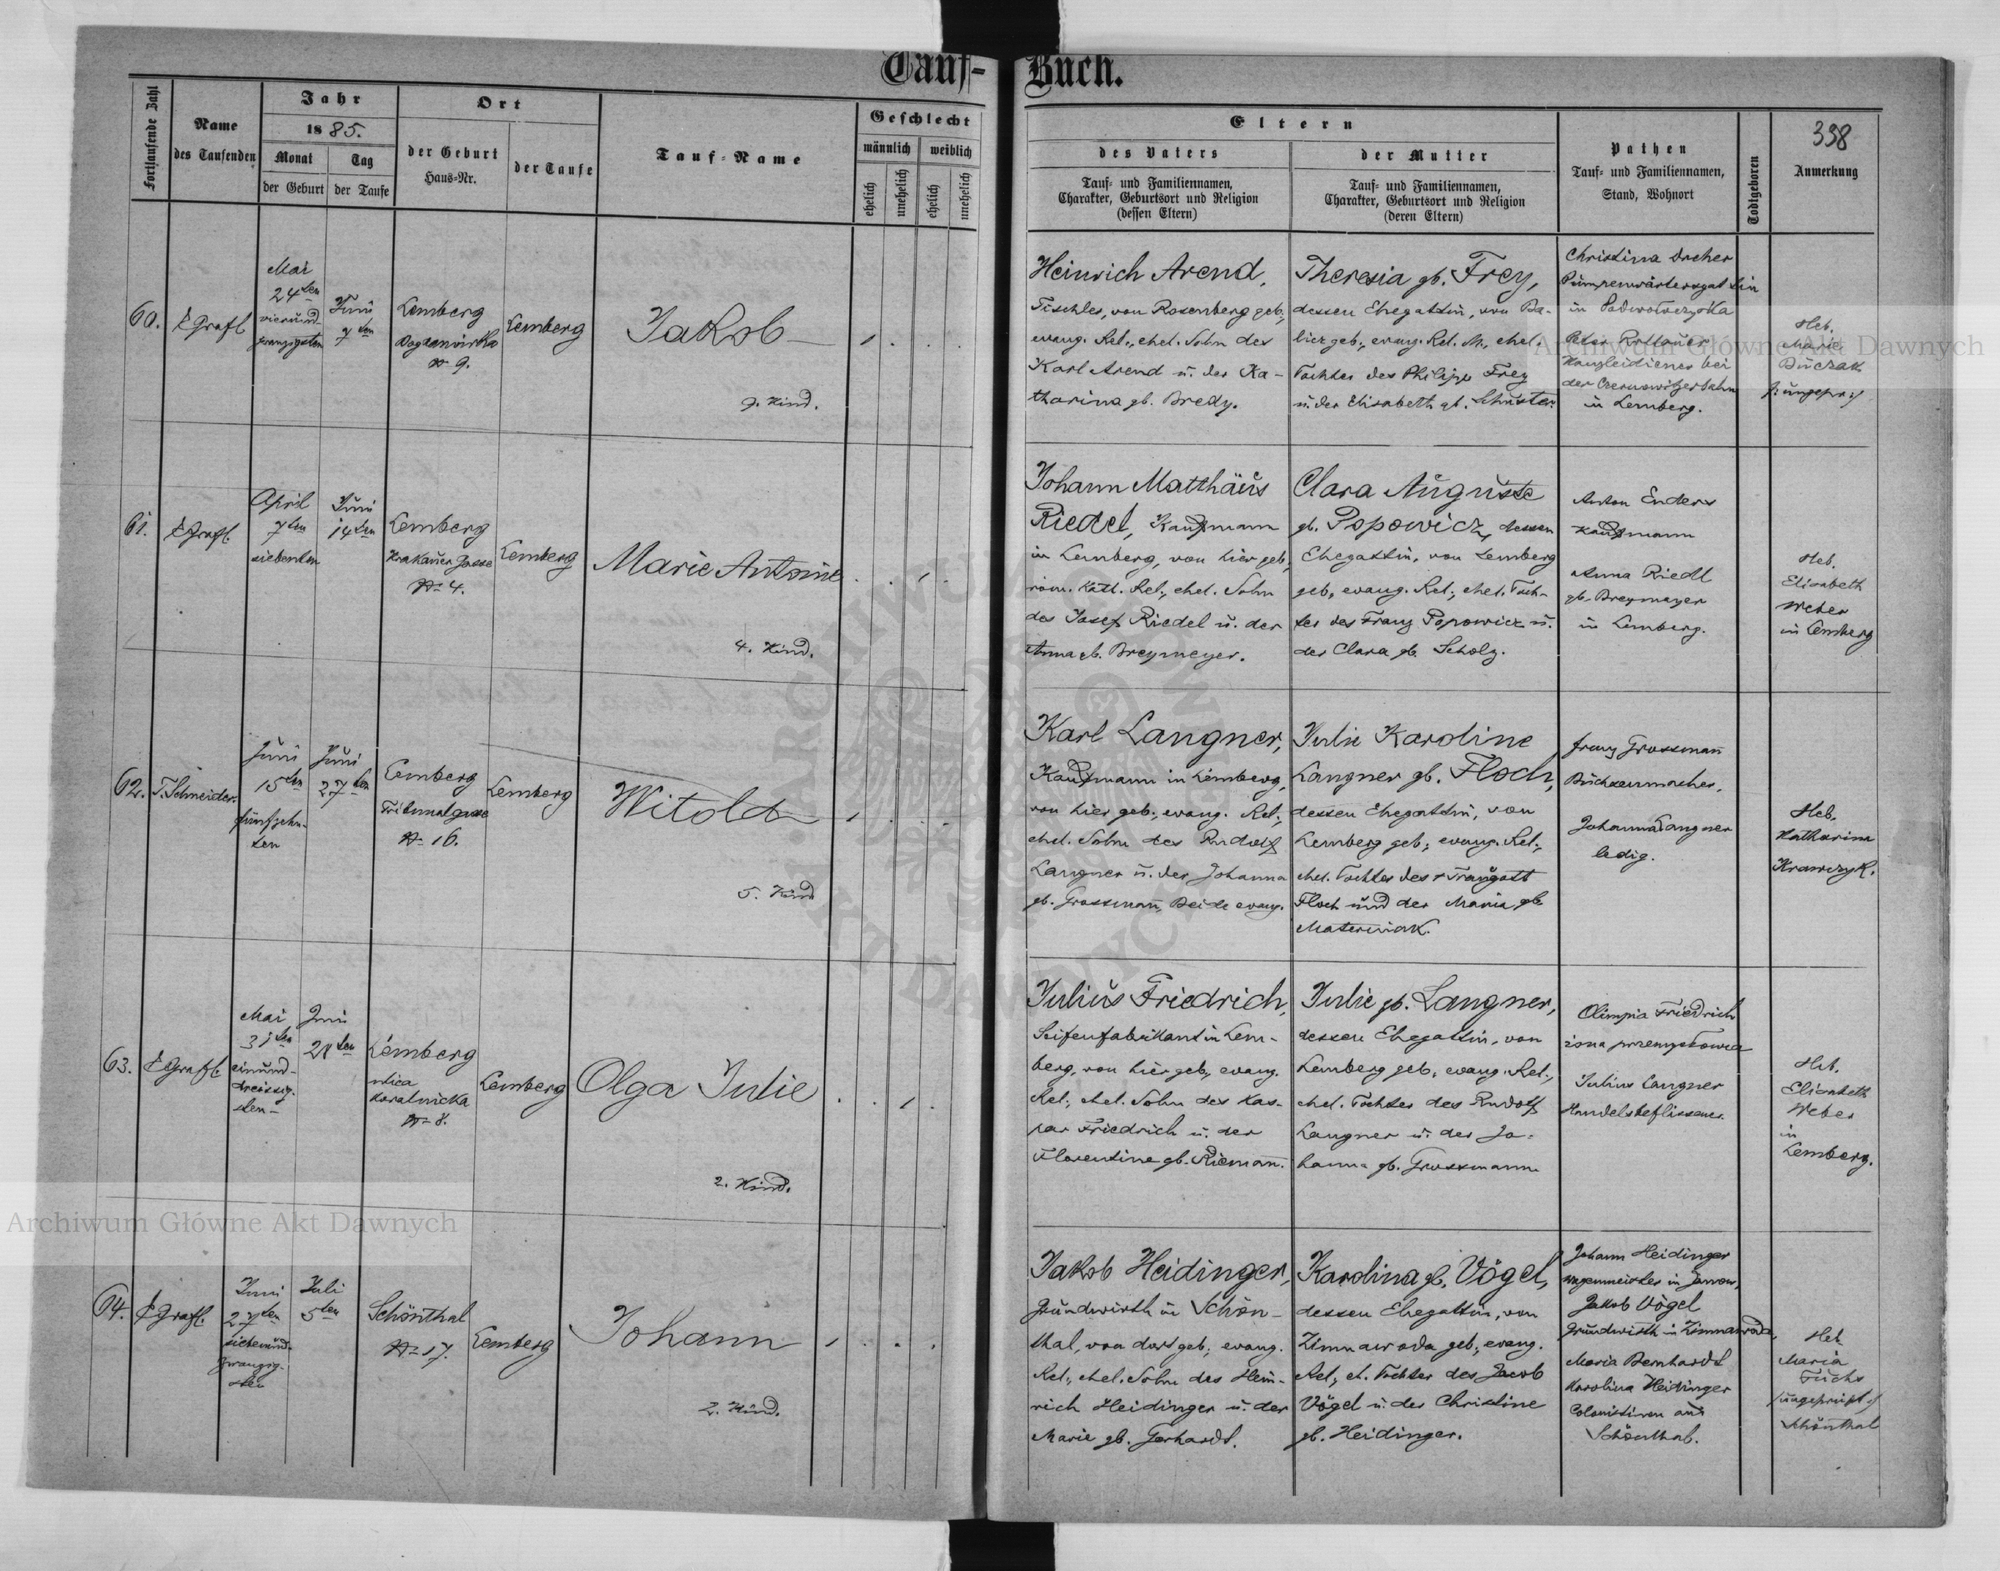 Tauf-Buch.
Fortlaufende Zahl
Name
des Taufenden
Jahr
1885.
Monat
der Geburt
Tag
der Taufe
Ort
der Geburt
Haus-Nr.
der Taufe
Tauf-Name
Geschlecht
männlich
weiblich
ehelich
unehelich
ehelich
unehelich
Eltern
des Vaters
Tauf- und Familiennamen,
Charakter, Geburtsort und Religion
(dessen Eltern)
der Mutter
Tauf- und Familiennamen,
Charakter, Geburtsort und Religion
(deren Eltern)
Pathen
Tauf- und Familiennamen,
Stand, Wohnort
Todtgeboren
338
Anmerkung
60.
Grafl
Mai
24ten
vierund
zwanzigsten
Juni
7ten
Lemberg
No 9.
Lemberg
Jakob
9. Kind.
1
Heinrich Arend,
Tischler, von Rosenberg geb.,
evang. Rel., ehel. Sohn des
Karl Arend u. der Ka-
tharina gb. Bredy.
Theresia gb. Frey,
dessen Ehegattin, von Da-
evang. Rel., ehel.
Tochter des Philipp Frey
u. der Elisabeth gb. Schuster.
Christina
in Podwołoczyska
Peter
Kanzleidiener bei
der Czernowitzer bahn
in Lemberg.
Heb.
Marie
Buczak
/:ungepr:/
61.
Grafl.
April
7ten
siebenten
Juni
14ten
Lemberg
Krakauer Gasse
No 4.
Lemberg
Marie Antonie
4. Kind.
1
Johann Matthäus
Riedel, Kaufmann
in Lemberg, von hier geb.,
röm. kath. Rel., ehel. Sohn
des Josef Riedel u. der
Anna gb. Breymeyer.
Clara Auguste
gb. Popowicz, dessen
Ehegattin, von Lemberg
geb., evang. Rel., ehel. Toch-
ter des Franz Popowicz u.
der Clara gb. Scholz.
Anton Enders
Kaufmann
Anna Riedl
gb. Breymayer
in Lemberg.
Heb.
Elisabeth
Weber
in Lemberg
62.
T. Schneider.
Juni
15ten
fünfzehn-
ten
Juni
27ten
Lemberg
Tribunalgasse
No 16.
Lemberg
Witold
5. Kind
1
Karl Langner,
Kaufmann in Lemberg,
von hier geb., evang. Rel.,
ehel. Sohn des Rudolf
Langner u. der Johanna
gb. Grossmann, Beide evang.
Julie Karoline
Langner gb. Floch,
dessen Ehegattin, von
Lemberg geb., evang. Rel.,
ehel. Tochter des + Traugott
Floch und der Maria gb.
Materniak.
Franz Grossmann
Büchsenmacher,
Johanna Langner
ledig.
Heb.
Katharina
Krawczyk.
63.
Grafl
Mai
31ten
einund-
dreissig-
sten-
Juni
28ten
Lemberg
ulica
No 8.
Lemberg
Olga Julie
2. Kind.
1
Julius Friedrich,
Seifenfabrikant in Lem-
berg, von hier geb., evang.
Rel., ehel. Sohn des Kas-
par Friedrich u. der
Florentine gb. Riemann.
Julie gb. Langner,
dessen Ehegattin, von
Lemberg geb., evang. Rel.,
ehel. Tochter des Rudolf
Langner u. der Jo-
hanna gb. Grossmann
Olimpia Friedrich
żona przemysłowca
Julius Langner
Handelsbeflissener
Heb.
Elisabeth
Weber
in
Lemberg.
64.
Grafl.
Juni
27ten
siebenund-
zwanzig-
sten
Juli
5ten
Schönthal
No 17.
Lemberg
Johann
2. Kind.
1
Jakob Heidinger,
Grundwirth in Schön-
thal, von dort geb., evang.
Rel., ehel. Sohn des Hein-
rich Heidinger u. der
Marie gb. Gerhardt.
Karolina gb. Vögel,
dessen Ehegattin, von
Zimnawoda geb., evang.
Rel., et. Tochter des Jacob
Vögel u. der Christine
gb. Heidinger.
Johann Heidinger
Wagenmeister in Janow,
Jakob Vögel
Grundwirth in Zimnawoda,
Maria Bernhardt
Karolina Heidinger
Colonistinen aus
Schönthal.
Heb.
Maria
Fuchs
/:ungeprüft:/
Schönthal
Archiwum Główne Akt Dawnych
Archiwum Główne Akt Dawnych
ARCHIWUM GŁÓWNE AKT DAWNYCH